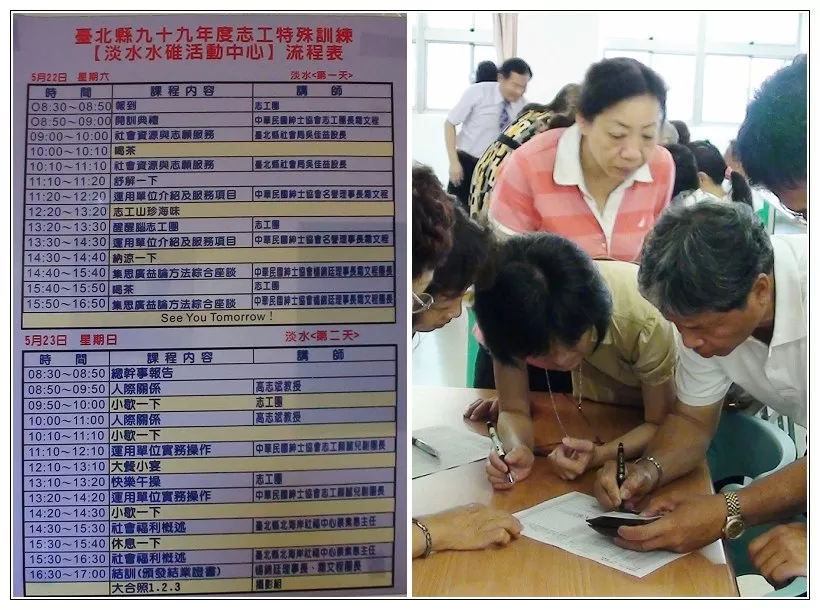 臺北縣九十九年度志工特殊訓練
【淡水水碓活動中心】流程表
5月22日 星期六 淡水<第一天>
時 間 課 程 內 容 講 師
08:30~08:50 報到 志工團
08:50~09:00 開訓典禮 中華民國紳士協會志工團長霜文程
09:00~10:00 社會資源與志願服務 臺北縣社會局吳佳益股長
10:00~10:10 喝茶
10:10~11:10 社會資源與志願服務 臺北縣社會局吳佳益股長
11:10~11:20 舒解一下
11:20~12:20 運用單位介紹及服務項目 中華民國紳士協會名譽理事長霜文程
12:20~13:20 志工山珍海味
13:20~13:30 醒醒腦志工團 志工團
13:30~14:30 運用單位介紹及服務項目 中華民國紳士協會名譽理事長霜文程
14:30~14:40 納涼一下
14:40~15:40 集思廣益論方法綜合座談 中華民國紳士協會楊錦廷理事長霜文程團長
15:40~15:50 喝茶 志工團
15:50~16:50 集思廣益論方法綜合座談 中華民國紳士協會楊錦廷理事長霜文程團長
See You Tomorrow!
5月23日 星期日 淡水<第二天>
時 間 課 程 內 容 講 師
08:30~08:50 總幹事報告
08:50~09:50 人際關係 高志斌教授
09:50~10:00 小歇一下 志工團
10:00~11:00 人際關係 高志斌教授
10:10~11:10 小歇一下
11:10~12:10 運用單位實務操作 中華民國紳士協會志工 副團長
12:10~13:10 大餐小宴
13:10~13:20 快樂午操 志工團
13:20~14:20 運用單位實務操作 中華民國紳士協會志工 副團長
14:20~14:30 小歇一下
14:30~15:30 社會福利概述 臺北縣北海岸社福中心蔡素惠主任
15:30~15:40 休息一下
15:30~16:30 社會福利概述 臺北縣北海岸社福中心蔡素惠主任
16:30~17:00 結訓(頒發結業證書) 楊錦廷理事長、霜文程團長
大合照1.2.3 攝影組